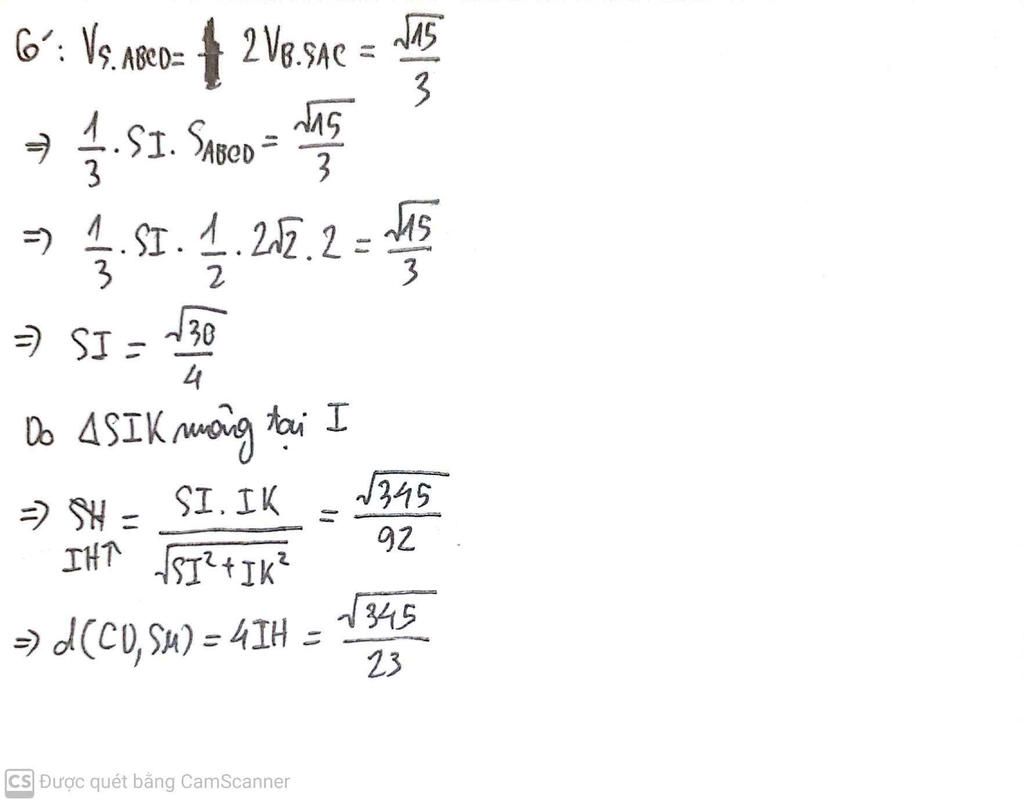 Có: V_{S.ABCD} = 2V_{B.SAC} = √15/3
⇒ 1/3 . SI . S_{ABCD} = √15/3
⇒ 1/3 . SI . 1/2 . 2√2 . 2 = √15/3
⇒ SI = √30/4
Do ΔSIK vuông tại I
⇒ SH = SI . IK / √(SI² + IK²) = √345/92
IH↑
⇒ d(CD, SM) = 4IH = √345/23
CS Được quét bằng CamScanner